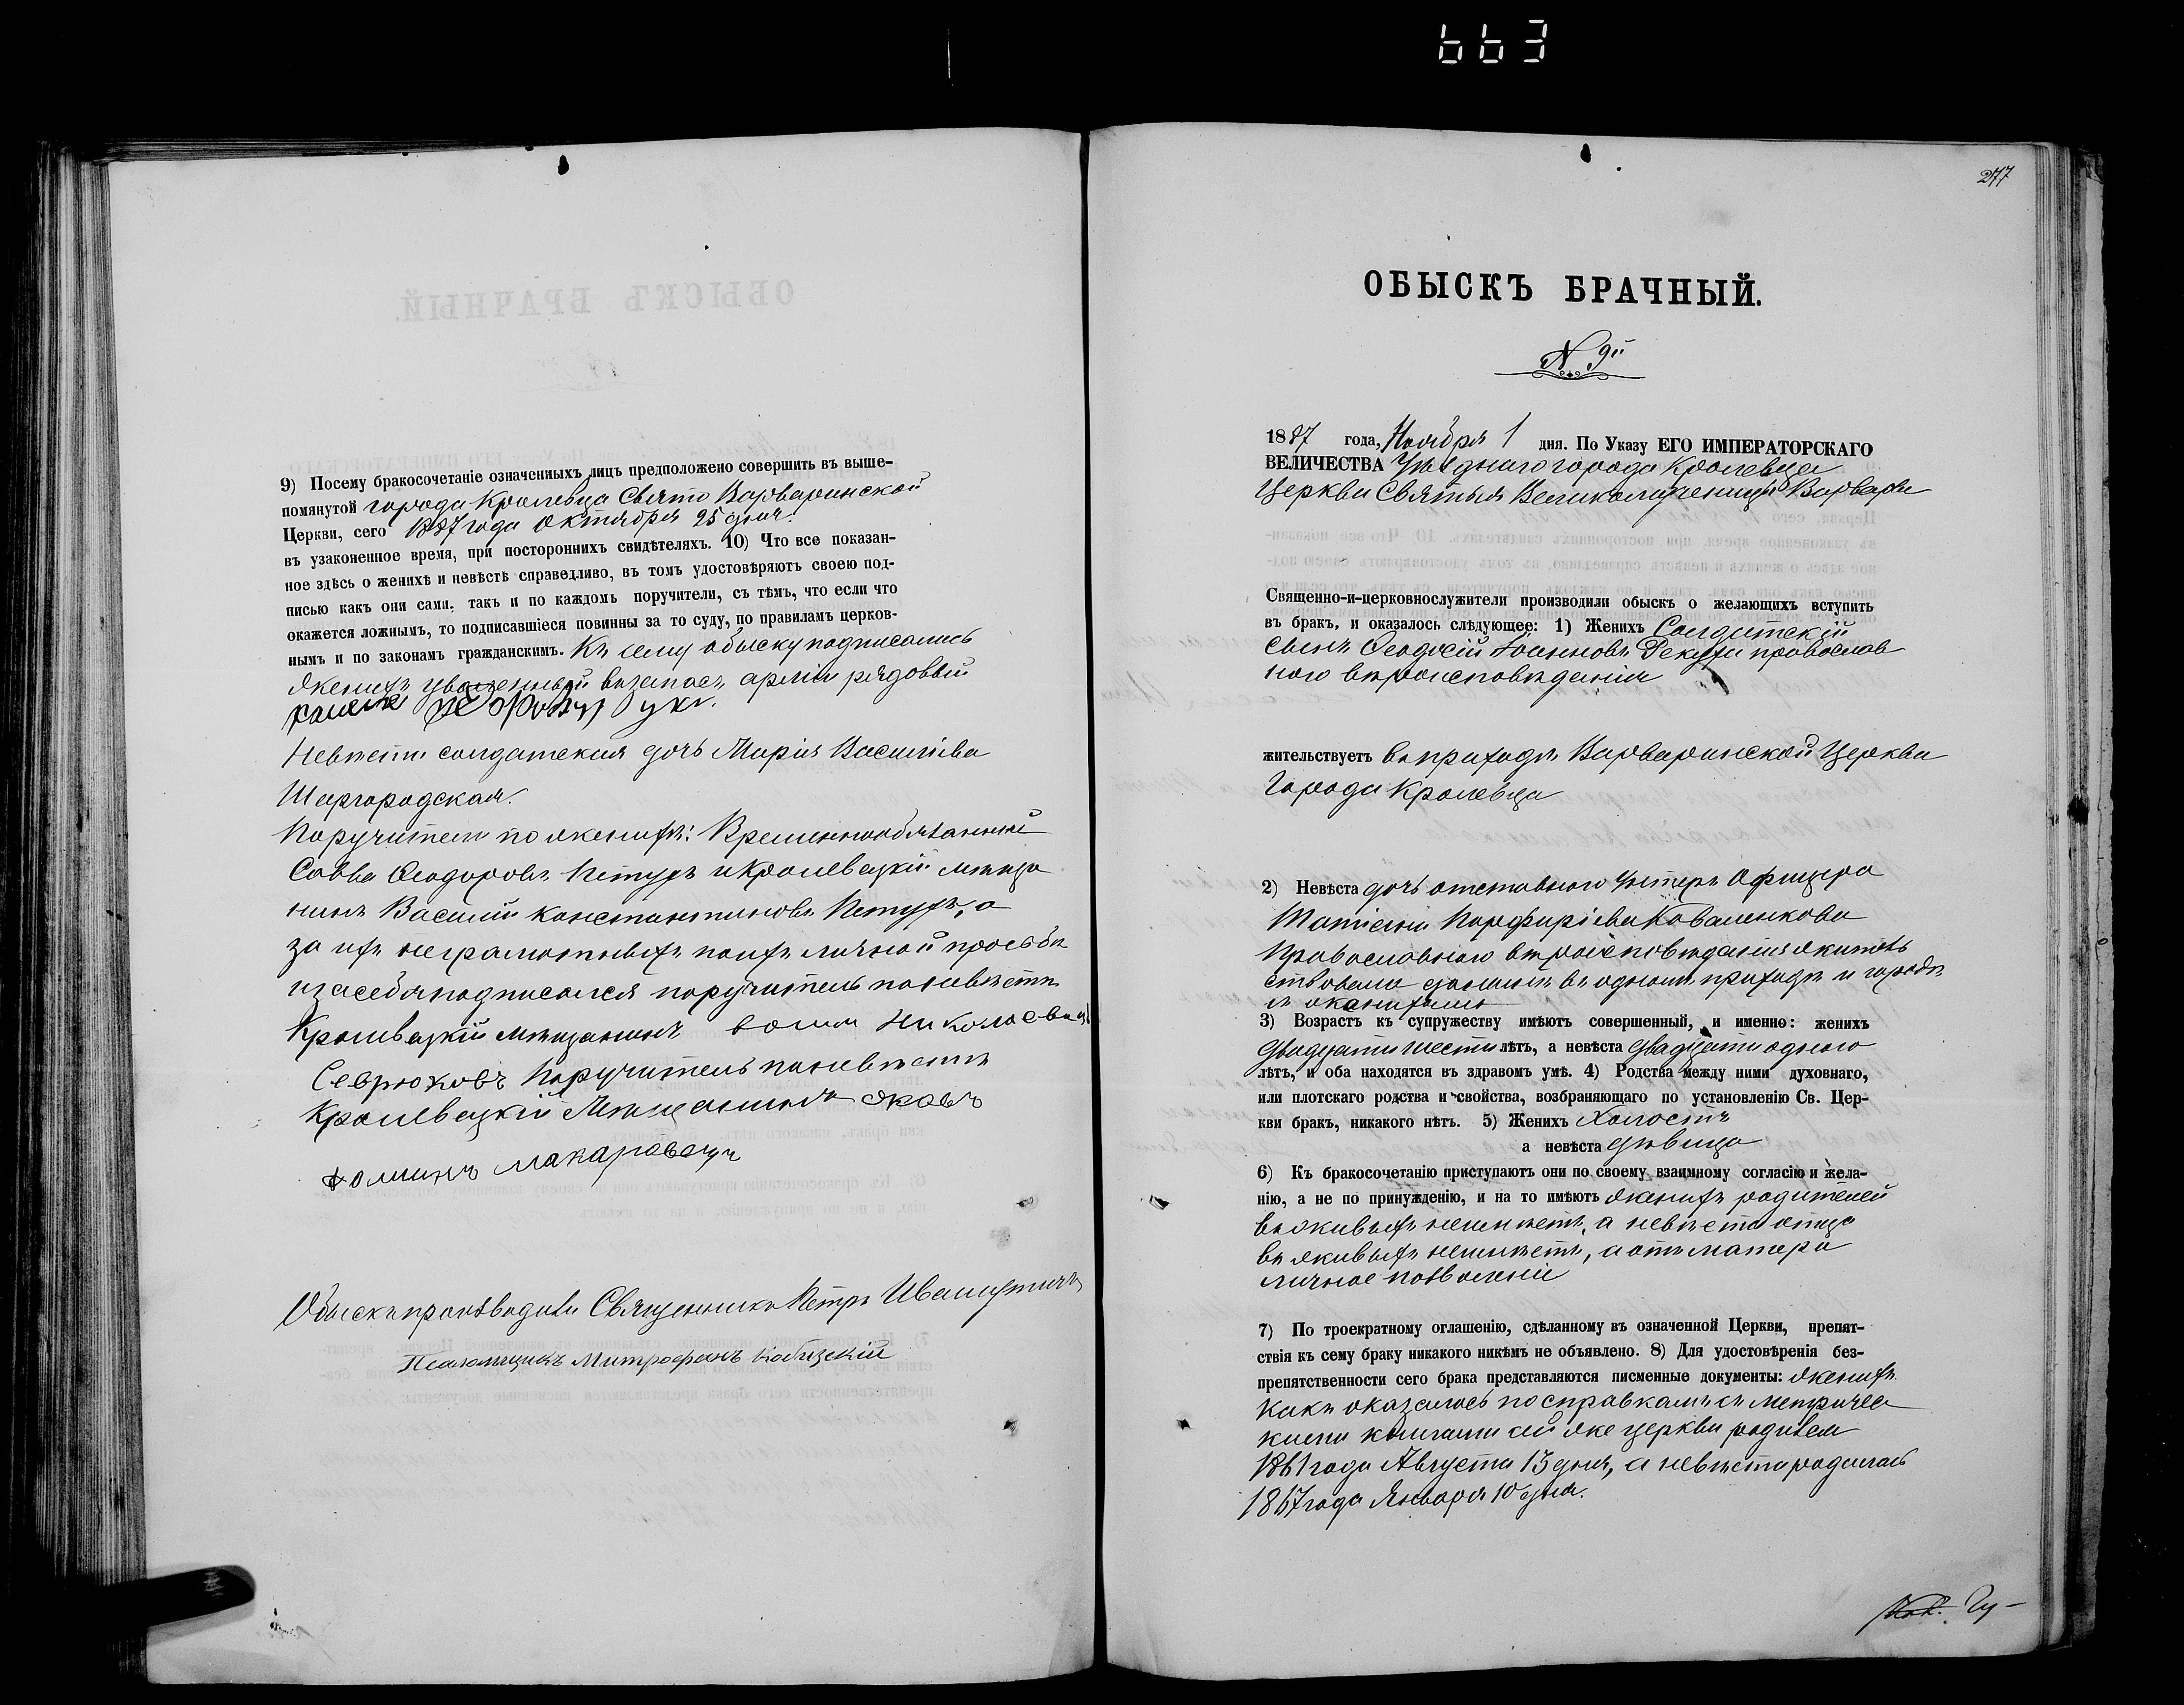 663
9) Посему бракосочетаніе означенныхъ лицъ предположено совершить въ выше-
помянутой города Кролевца Свято Варваринской
Церкви, сего 1887 года Октября 25 дня.
въ узаконенное время, при постороннихъ свидѣтеляхъ. 10) Что все показан-
ное здѣсь о женихѣ и невѣстѣ справедливо, въ томъ удостовѣряютъ своею под-
писью какъ они сами, такъ и по каждомъ поручители, съ тѣмъ, что если что
окажется ложнымъ, то подписавшіеся повинны за то суду, по правиламъ церков-
нымъ и по законамъ гражданскимъ. Къ сему обыску подписались
женихъ уволенный въ запасъ арміи рядовый
Невѣста солдатская дочь Марія Васильева
Шаргородская.
Поручители по женихѣ: Временнообязанный
Савва Ѳеодоровъ Петухъ и Кролевецкій мѣща
нинъ Василій Константиновъ Петухъ, а
за ихъ неграмотныхъ по ихъ личной просьбѣ
и за себя подписался поручитель по невѣстѣ
Кролевецкій мѣщанинъ Николаевъ
Севрюковъ Поручитель по невѣстѣ
Кролевецкій Мѣщанинъ Яковъ
Фоминъ Макаровецъ
Обыскъ производили Священникъ Петръ Ивашутичъ
Псаломщикъ Митрофанъ Кобызскій
277
ОБЫСКЪ БРАЧНЫЙ.
N 9й
1887 года, Ноября 1 дня. По Указу ЕГО ИМПЕРАТОРСКАГО
ВЕЛИЧЕСТВА Уѣзднаго города Кролевца
Церкви Святыя Великомученицы Варвары
Священно-и-церковнослужители производили обыскъ о желающихъ вступить
въ бракъ, и оказалось слѣдующее: 1) Женихъ Солдатскій
сынъ Ѳеодосій Іоанновъ Рекуха православ
наго вѣроисповѣданія
жительствуетъ въ приходѣ Варваринской Церкви
Города Кролевца
2) Невѣста дочь отставнаго Унтеръ Офицера
Татіана Порфиріева Коваленкова
Православнаго вѣроисповѣданія жительствовала
въ одномъ приходѣ и городѣ
съ женихомъ
3) Возрастъ къ супружеству имѣютъ совершенный, и именно: женихъ
двадцати шести лѣтъ, а невѣста двадцати одного
лѣтъ, и оба находятся въ здравомъ умѣ. 4) Родства между ними духовнаго,
или плотскаго родства и свойства, возбраняющаго по установленію Св. Цер-
кви бракъ, никакого нѣтъ. 5) Женихъ Холостъ
а невѣста дѣвица
6) Къ бракосочетанію приступаютъ они по своему взаимному согласію и жела-
нію, а не по принужденію, и на то имѣютъ женихъ родителей
въ живыхъ неимѣетъ, а невѣста отца
въ живыхъ неимѣетъ, а отъ матери
личное позволеніе
7) По троекратному оглашенію, сдѣланному въ означенной Церкви, препят-
ствія къ сему браку никакого никѣмъ не объявлено. 8) Для удостовѣренія без-
препятственности сего брака представляются писменные документы: женихъ
какъ оказалось по справкамъ съ метричес
кими книгами сей же церкви родился
1861 года Августа 15 дня, а невѣста родилась
1867 года Января 10 дня.